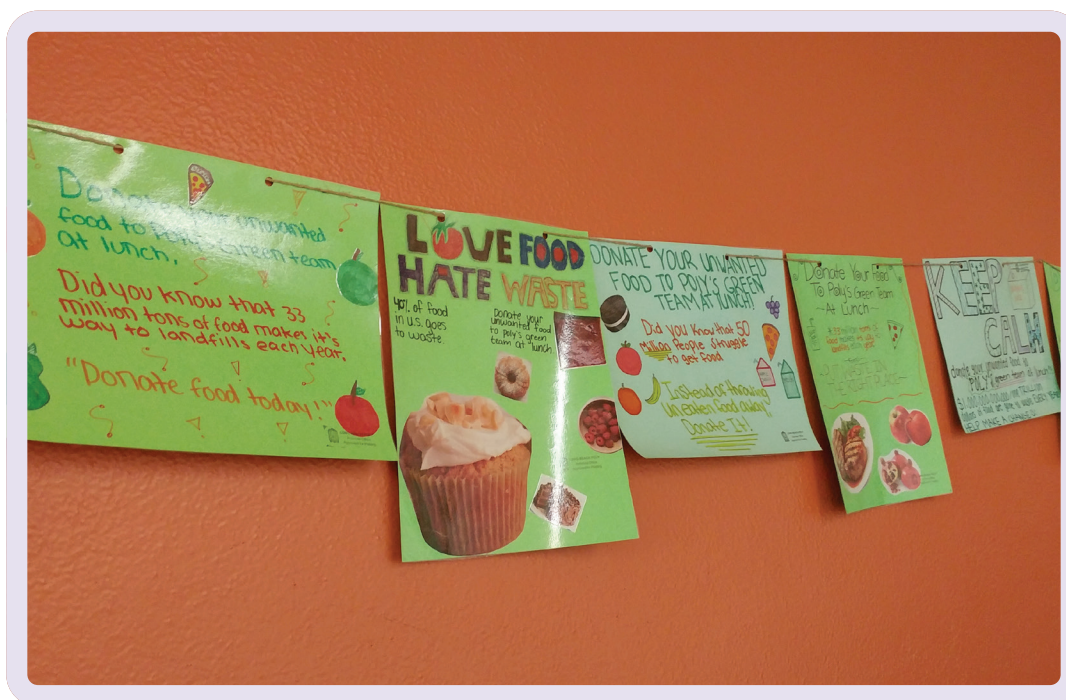 Donate your unwanted
food to Poly's Green team
at lunch.
Did you know that 33
million tons of food makes it's
way to landfills each year.
"Donate food today!"
LOVE FOOD
HATE WASTE
40% of food
in U.S. goes
to waste.
Donate your
unwanted food
to Poly's green
team at lunch
DONATE YOUR UNWANTED
FOOD TO POLY'S GREEN
TEAM AT LUNCH!
Did you know that 50
Million People struggle
to get food
Instead of throwing
Uneaten food away"
Donate It!
Donate Your Food
To Poly's Green Team
~At Lunch~
KEEP
CALM
donate your unwanted food to
POLY's green team at lunch!
HELP MAKE A CHANGE